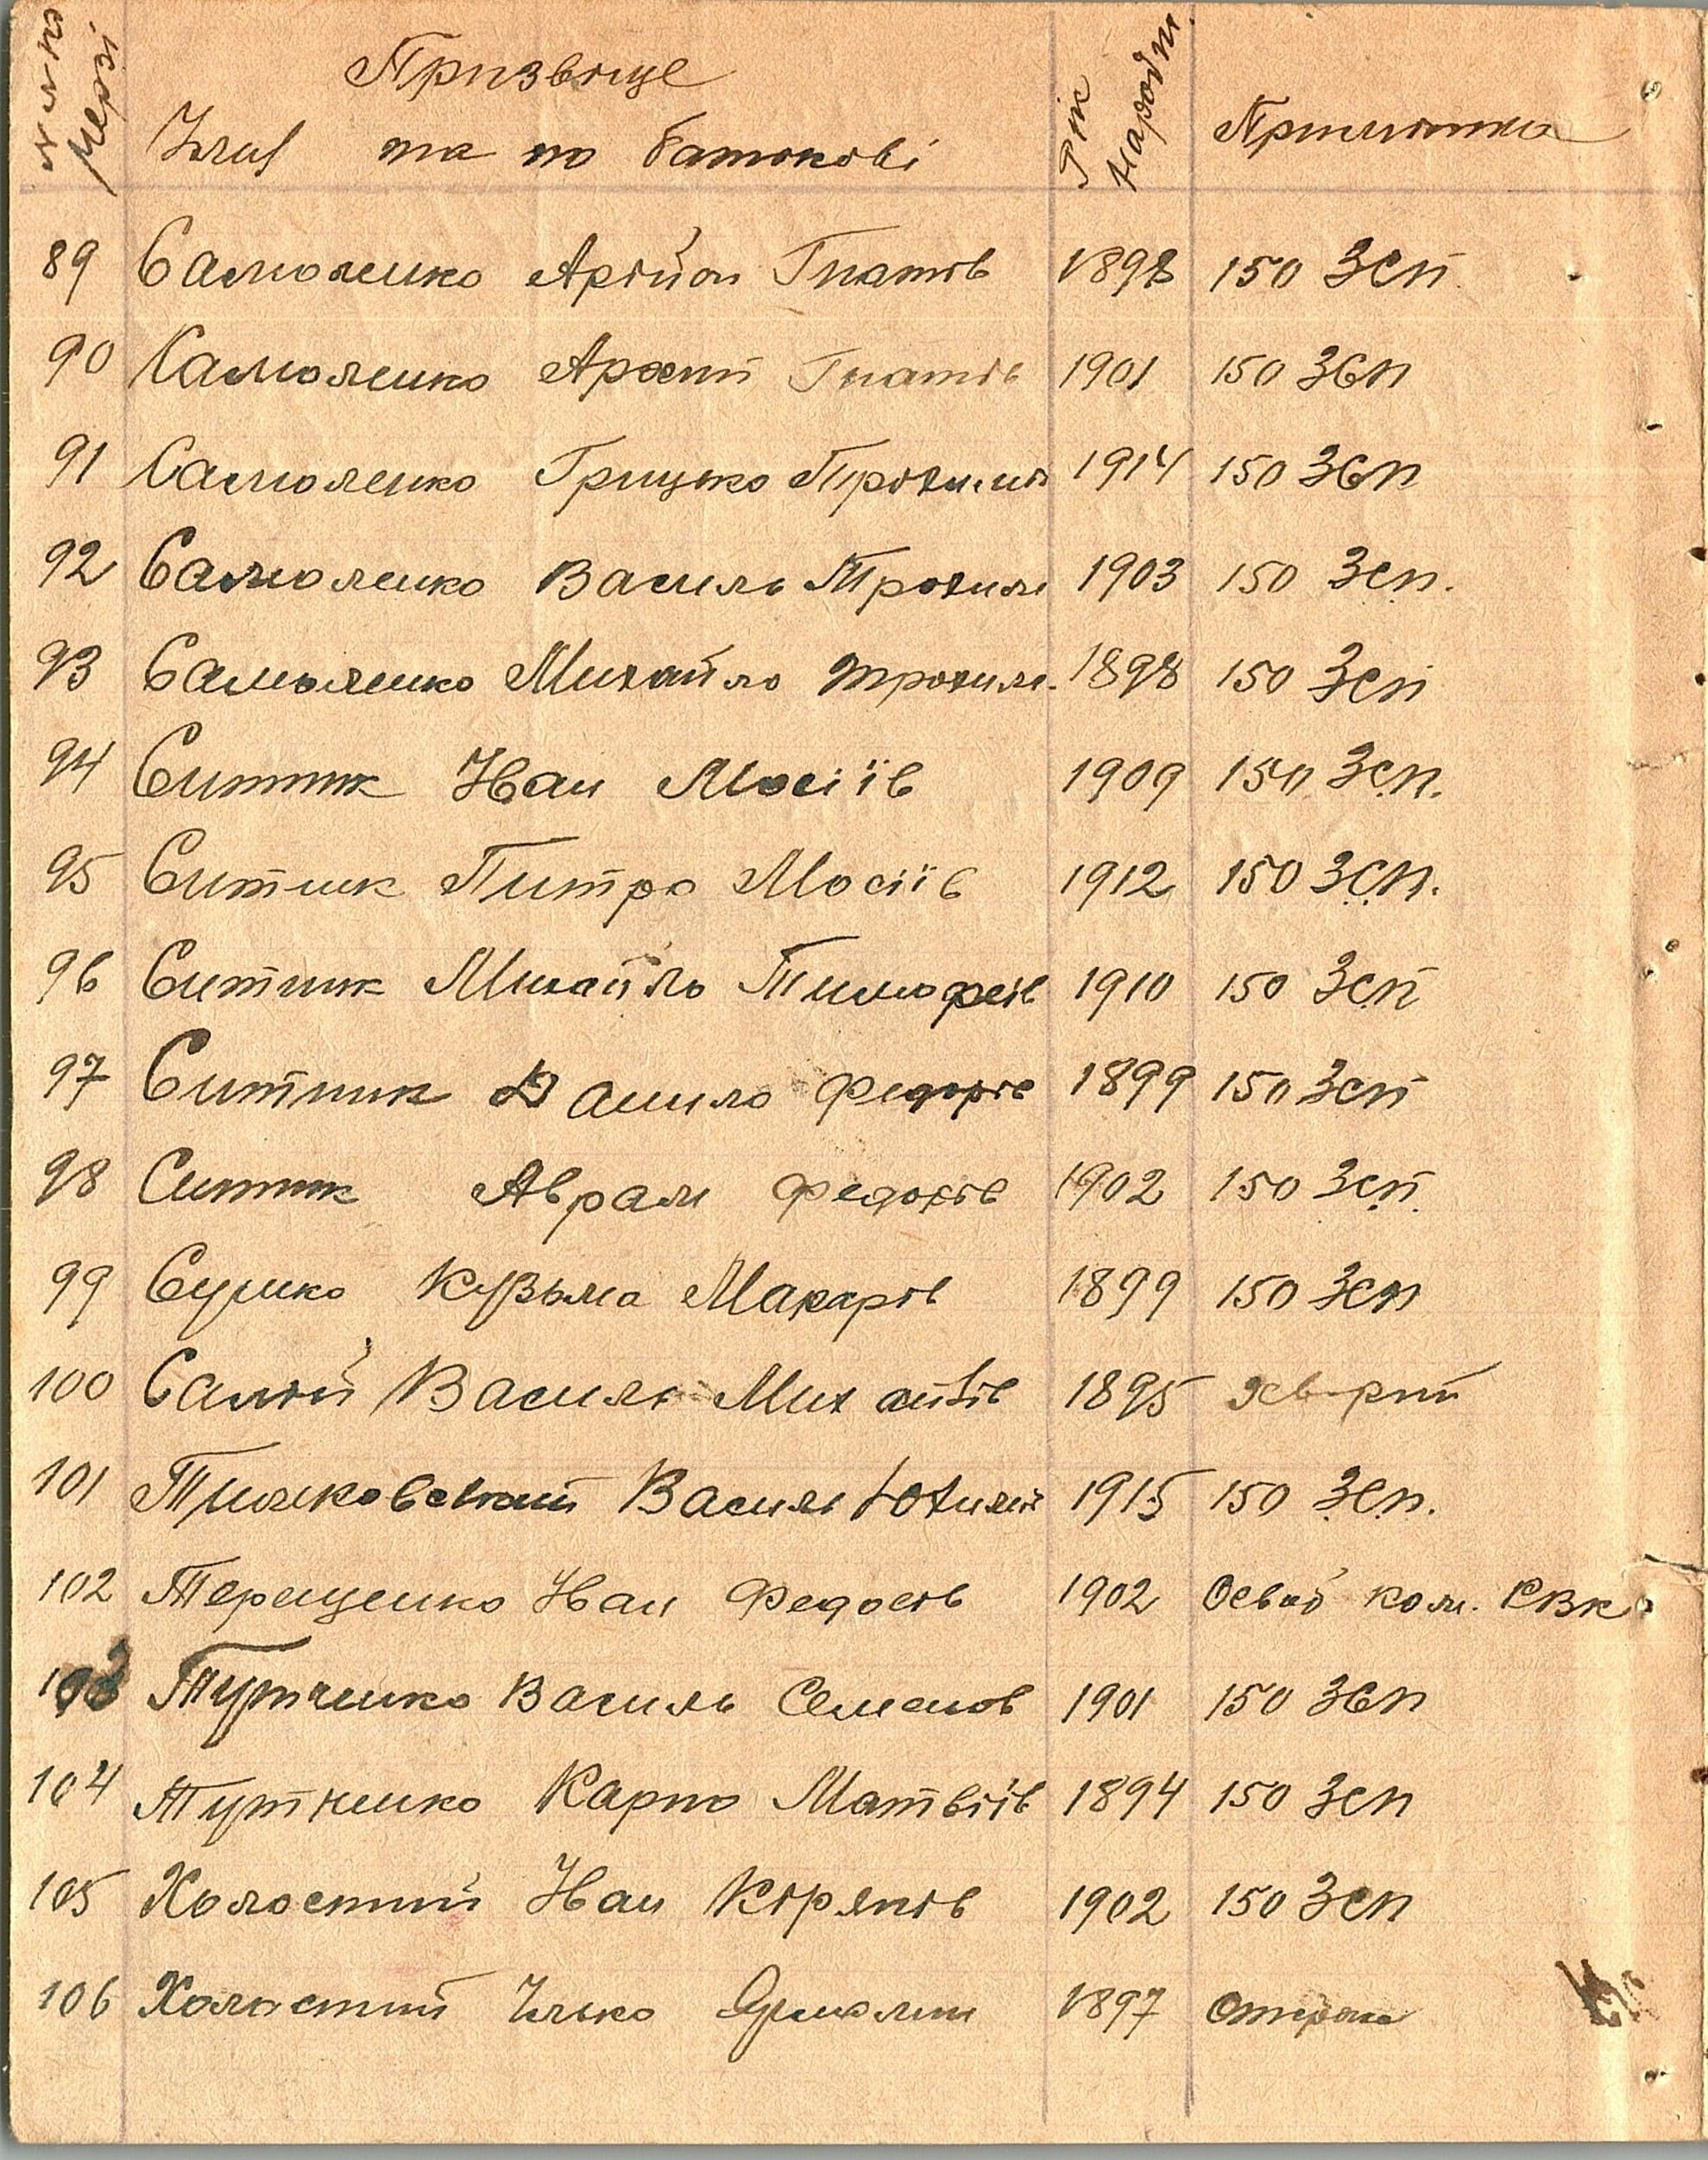 Призвіще Рік Народж. Примітка
Імя та по батькові
89 Самоленко Арійон Гнатів 1898 150 ЗСП
90 Самоленко Архип Гнатів 1901 150 ЗСП
91 Самоленко Грицько Трохимів 1914 150 ЗСП
92 Самоленко Василь Трохим 1903 150 ЗСП.
93 Самоленко Михайло Трохим. 1898 150 ЗСП
94 Ситник Иван Мосіїв 1909 150 ЗСП.
95 Ситник Питро Мосіїв 1912 150 ЗСП.
96 Ситник Михайло Тимофеів 1910 150 ЗСП
97 Ситник Данило Федорів 1899 150 ЗСП
98 Ситник Аврам Федорів 1902 150 ЗСП.
99 Сушко Кузьма Макарів 1899 150 ЗСП
100 Салій Василь 1895
101 Василь Юхимів 1915 150 ЗСП.
102 Терещенко Иван Федосів 1902 ком. РВК
103 Тутченко Василь Семенов 1901 150 ЗСП
104 Тутченко Карпо Матвіїв 1894 150 ЗСП
105 Холостий Иван Кіряків 1902 150 ЗСП
106 Холастий Ілько 1897